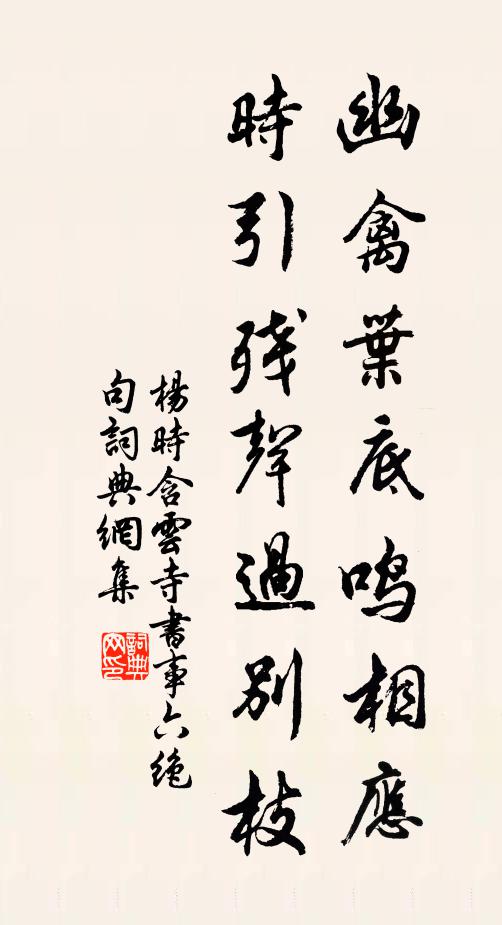 幽禽葉底鳴相應
時引殘聲過別枝
楊時含雲寺書事六絶
句詞典網集
詞典網印